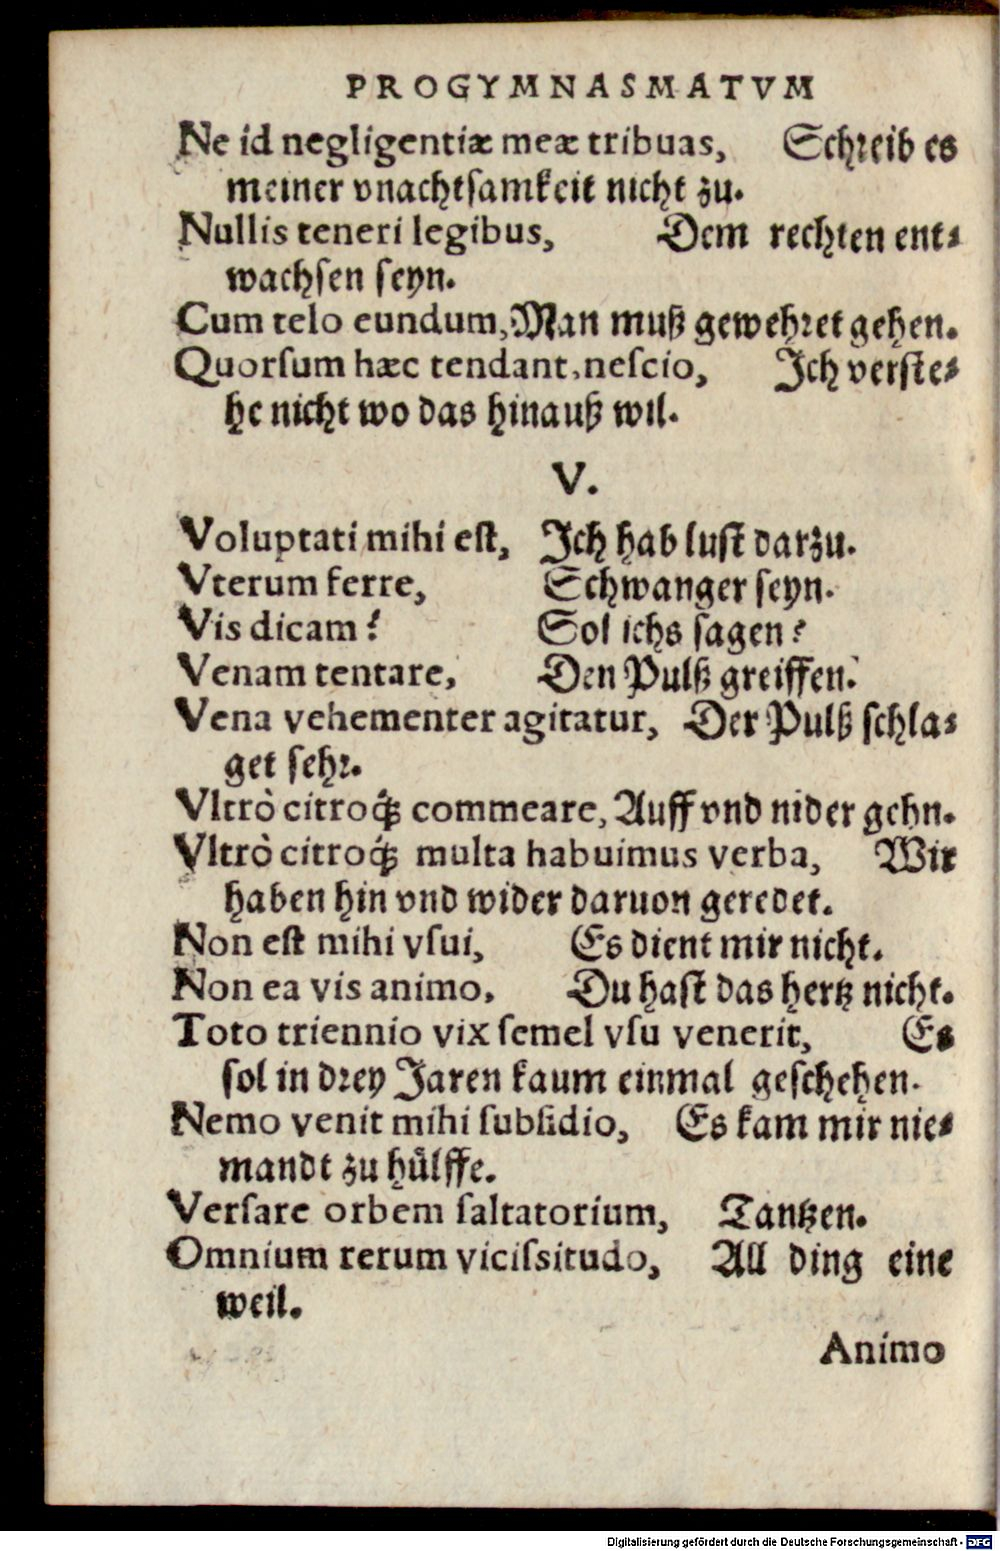 PROGYMNASMATVM
Ne id negligentiæ meæ tribuas, Schreib es
meiner vnachtsamkeit nicht zu.
Nullis teneri legibus, Dem rechten ent-
wachsen seyn.
Cum telo eundum, Man muß gewehret gehen.
Quorsum hæc tendant, nescio, Ich verste-
he nicht wo das hinauß wil.
V.
Voluptati mihi est, Ich hab lust darzu.
Vterum ferre, Schwanger seyn.
Vis dicam? Sol ichs sagen?
Venam tentare, Den Pulß greiffen.
Vena vehementer agitatur, Der Pulß schla-
get sehr.
Vltrò citroq́ꝫ commeare, Auff vnd nider gehn.
Vltrò citroq́ꝫ multa habuimus verba, Wir
haben hin vnd wider daruon geredet.
Non est mihi vsui, Es dient mir nicht.
Non ea vis animo, Du hast das hertz nicht.
Toto triennio vix semel vsu venerit, Es
sol in drey Jaren kaum einmal geschehen.
Nemo venit mihi subsidio, Es kam mir nie-
mandt zu hülffe.
Versare orbem saltatorium, Tantzen.
Omnium rerum vicissitudo, All ding eine
weil.
Animo
Digitalisierung gefördert durch die Deutsche Forschungsgemeinschaft - DFG